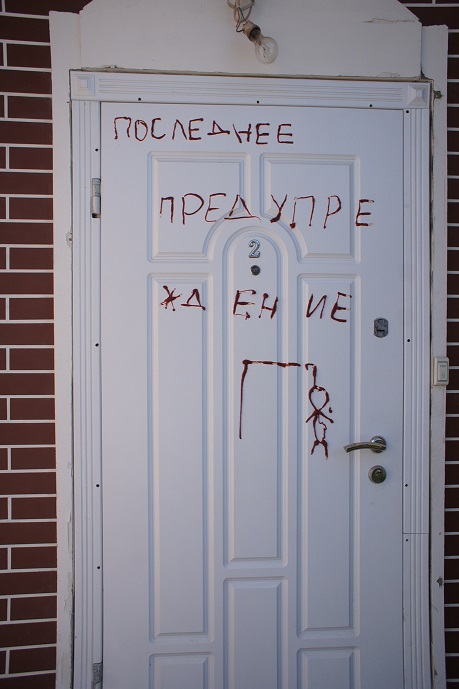 ПОСЛЕДНЕЕ
ПРЕДУПРЕ
2
ЖДЕНИЕ